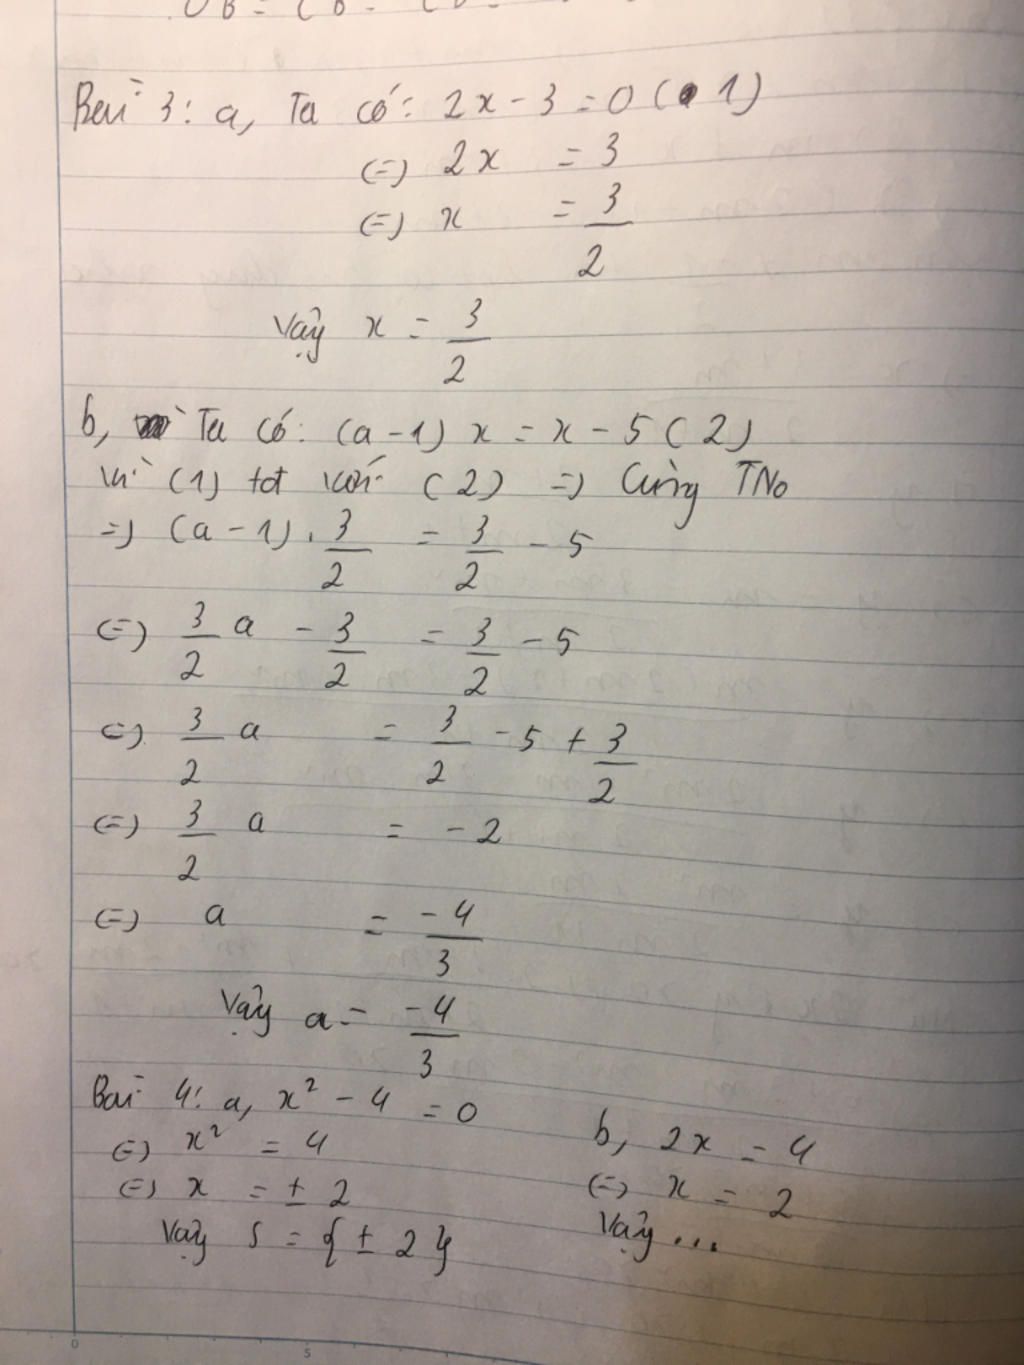 Bài 3: a, Ta có: 2x - 3 = 0 (1)
(=) 2x = 3
(=) x = 3/2
Vậy x = 3/2
b, Ta có: (a-1) x = x - 5 (2)
Vì (1) tđ với (2) =) Cùng TNo
=) (a-1) . 3/2 = 3/2 - 5
(=) 3/2 a - 3/2 = 3/2 - 5
(=) 3/2 a = 3/2 - 5 + 3/2
(=) 3/2 a = -2
(=) a = -4/3
Vậy a = -4/3
Bài 4: a, x² - 4 = 0
(=) x² = 4
(=) x = ± 2
Vậy S = {± 2}
b, 2x = 4
(=) x = 2
Vậy ...
0 5